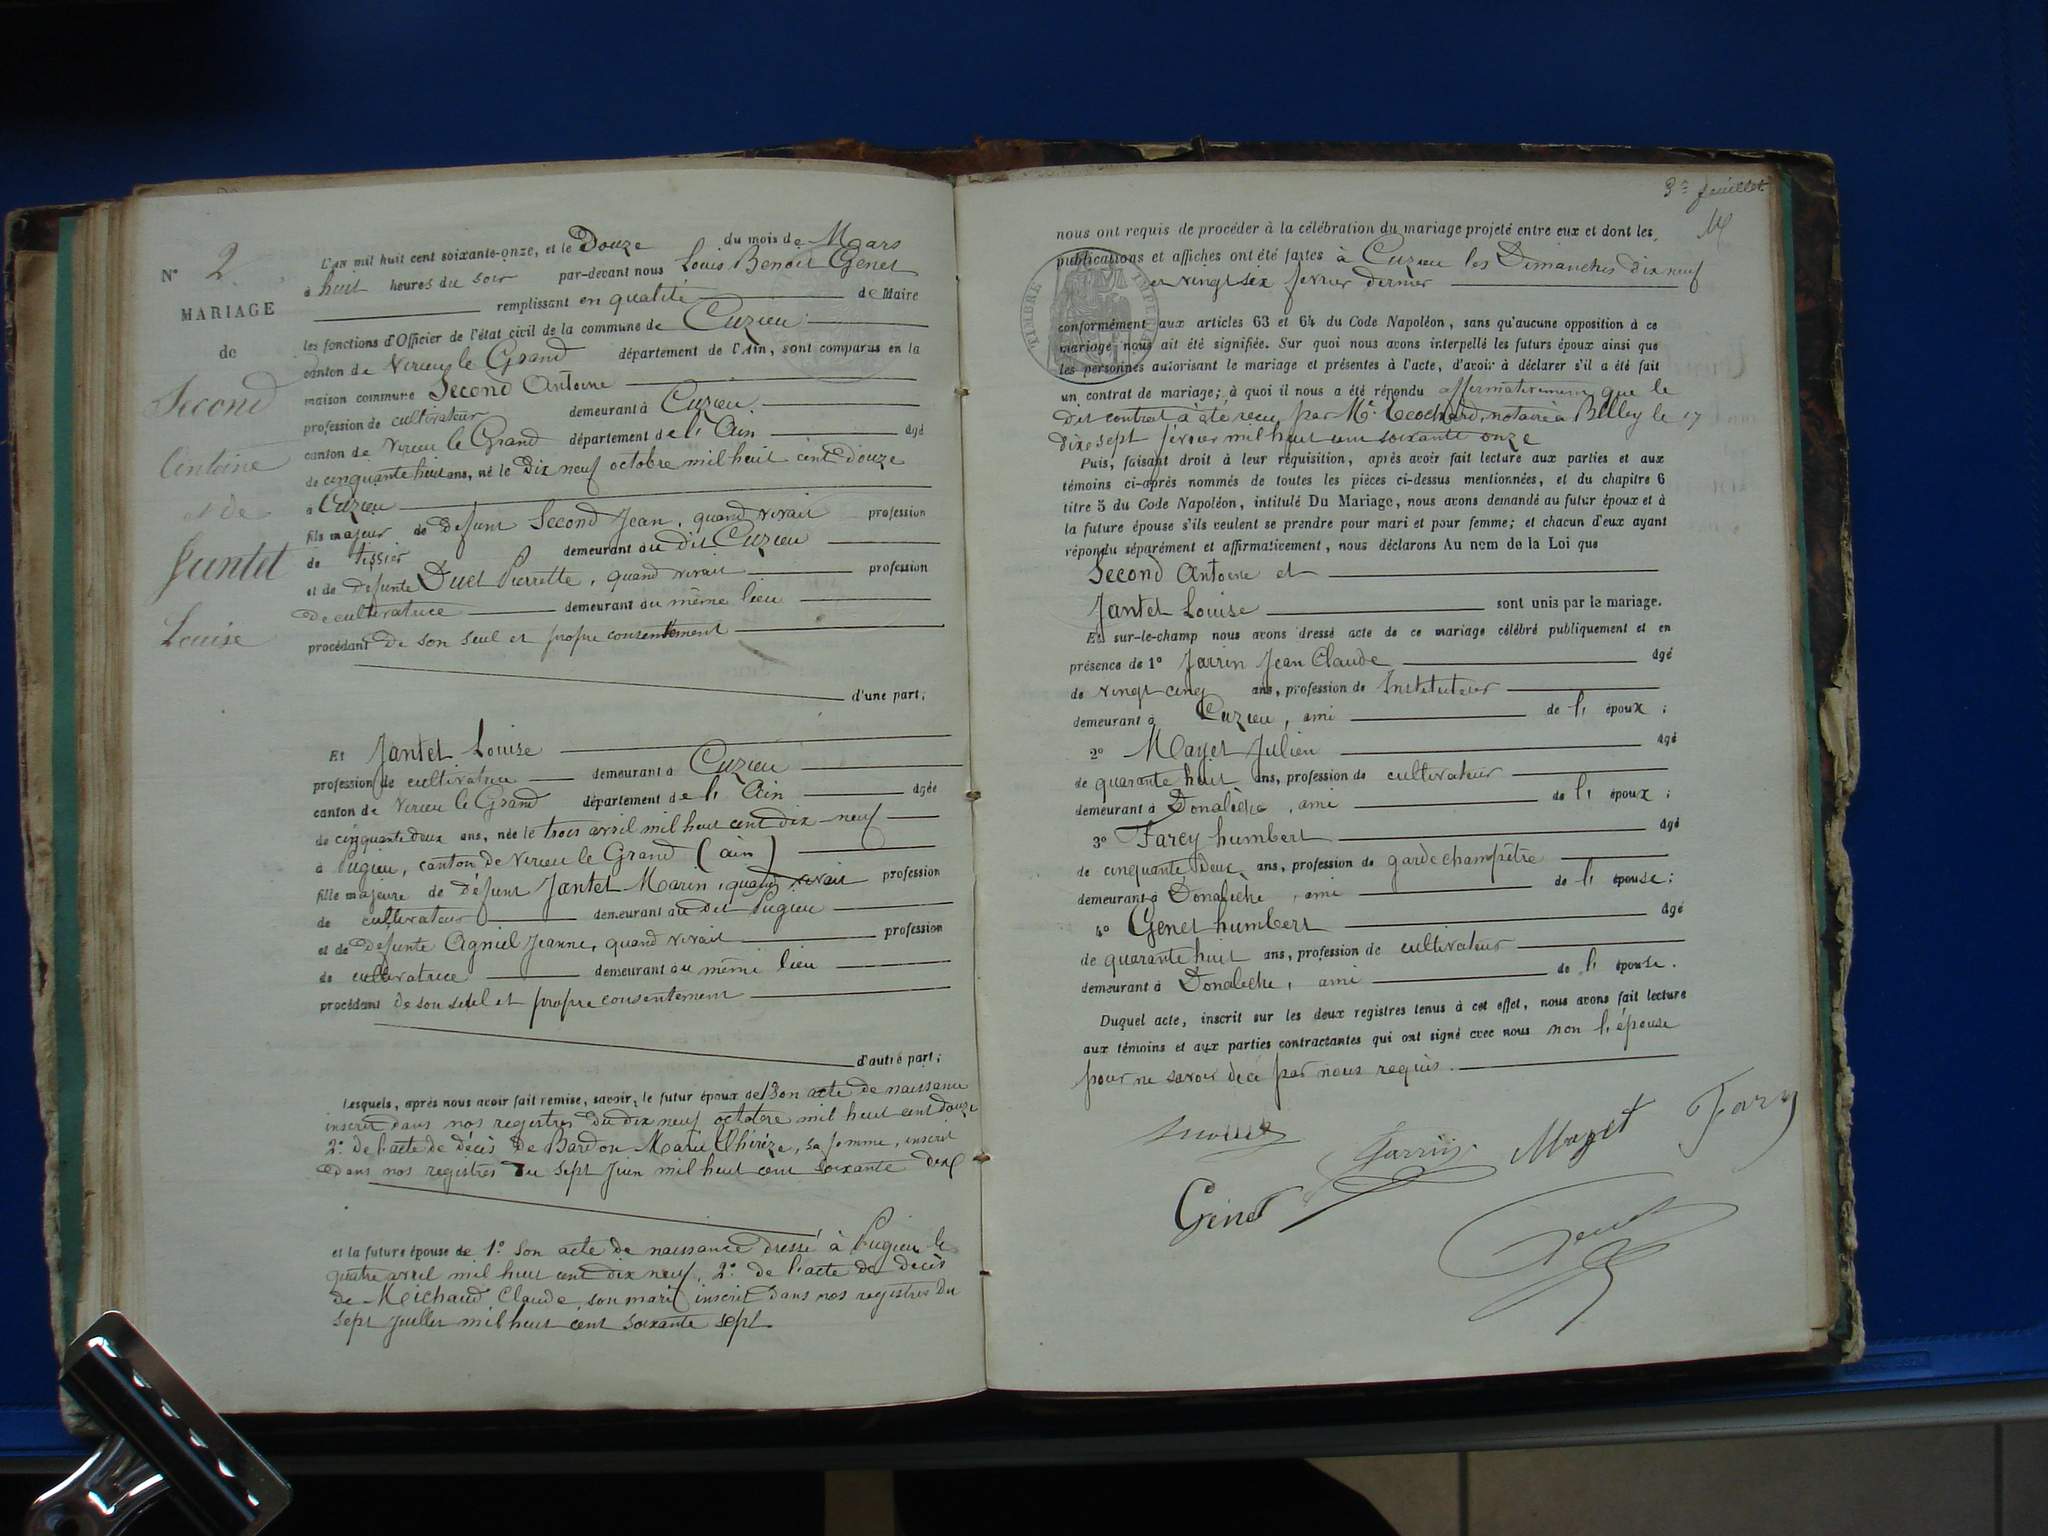 N° 2
MARIAGE
de
Second
Antoine
et de
Jantet
Louise
L'an mil huit cent soixante-onze, et le Douze du mois de Mars
à huit heures du soir par-devant nous Louis Benoit Genet
remplissant en qualité de Maire
les fonctions d'Officier de l'état civil de la commune de Cuzieu
canton de Virieu le Grand département de l'Ain, sont comparus en la
maison commune Second Antoine
profession de cultivateur demeurant à Cuzieu
canton de Virieu le Grand département de l'Ain âgé
de cinquante huit ans, né le Dix neuf octobre mil huit cent Douze
à Cuzieu
fils majeur de défunt Second Jean, quand vivait profession
de tissier demeurant au dit Cuzieu
et de Défunte Duet Pierrette, quand vivait profession
De cultivatrice demeurant au même lieu
procédant De son seul et propre consentement
d'une part;
Et Jantet Louise
profession de cultivatrice demeurant à Cuzieu
canton de Virieu le Grand département de l'Ain âgée
de cinquante deux ans, née le trois avril mil huit cent dix-neuf
à Pugieu, canton de Virieu le Grand (ain)
fille majeure de Défunt Jantet Marin, quand vivait profession
de cultivateur demeurant au dit Pugieu
et de Défunte Agniel Jeanne, quand vivait profession
de cultivatrice demeurant au même lieu
procédant de son seul et propre consentement
d'autre part;
Lesquels, après nous avoir fait remise, savoir, le futur époux de 1° son acte de naissance
inscrit dans nos registres du dix neuf octobre mil huit cent douze
2° de l'acte de décès de Bardon Marie Thérèze, sa femme, inscrit
Dans nos registres du sept Juin mil huit cent soixante dix
et la future épouse de 1° son acte de naissance dressé à Pugieu le
quatre avril mil huit cent dix neuf, 2° de l'acte de décès
de Michaud Claude, son mari inscrit dans nos registres du
sept Juillet mil huit cent soixante sept
3e feuillet
nous ont requis de procéder à la célébration du mariage projeté entre eux et dont les
publications et affiches ont été faites à Cuzieu les Dimanches dix neuf
et vingt six février dernier
TIMBRE IMPERIAL
conformément aux articles 63 et 64 du Code Napoléon, sans qu'aucune opposition à ce
mariage nous ait été signifiée. Sur quoi nous avons interpellé les futurs époux ainsi que
les personnes autorisant le mariage et présentes à l'acte, d'avoir à déclarer s'il a été fait
un contrat de mariage; à quoi il nous a été répondu affirmativement que le
Dit contrat à été reçu par Me notaire à Belley le 17
dix sept février mil huit cent soixante onze
Puis, faisant droit à leur réquisition, après avoir fait lecture aux parties et aux
témoins ci-après nommés de toutes les pièces ci-dessus mentionnées, et du chapitre 6
titre 5 du Code Napoléon, intitulé Du Mariage, nous avons demandé au futur époux et à
la future épouse s'ils veulent se prendre pour mari et pour femme; et chacun d'eux ayant
répondu séparément et affirmativement, nous déclarons Au nom de la Loi que
Second Antoine et
Jantet Louise sont unis par le mariage.
Et sur-le-champ nous avons dressé acte de ce mariage célébré publiquement et en
présence de 1° Jarrin Jean Claude âgé
de vingt cinq ans, profession de Instituteur
demeurant à Cuzieu, ami de l'époux;
2° Mayet Julien âgé
de quarante huit ans, profession de cultivateur
demeurant à Donalèche, ami de l'époux;
3° Farcy humbert âgé
de cinquante deux ans, profession de garde champêtre
demeurant à Donalèche, ami de l'épouse;
4° Genet humbert âgé
de quarante huit ans, profession de cultivateur
demeurant à Donalèche, ami de l'épouse.
Duquel acte, inscrit sur les deux registres tenus à cet effet, nous avons fait lecture
aux témoins et aux parties contractantes qui ont signé avec nous non l'épouse
pour ne savoir de ce par nous requis.
Jarrin Mayet Farcy
Genet
Genet